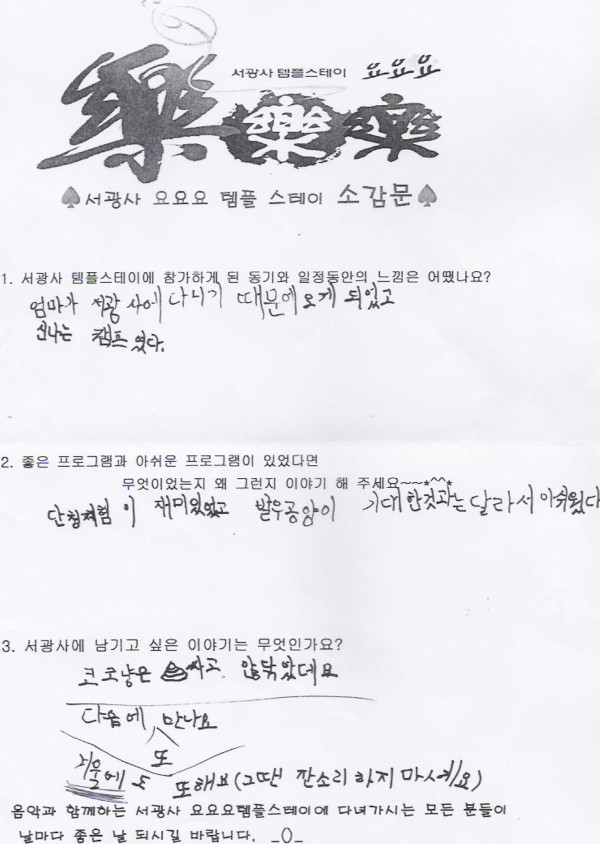 서광사 템플스테이 요요요
樂 樂 樂
♠서광사 요요요 템플 스테이 소감문♠
1. 서광사 템플스테이에 참가하게 된 동기와 일정동안의 느낌은 어땠나요?
엄마가 서광 사에 다니기 때문에 오게 되었고
신나는 캠프였다.
2. 좋은 프로그램과 아쉬운 프로그램이 있었다면
무엇이었는지 왜 그런지 이야기 해 주세요~~~*^^*
단청체험이 재미있었고 발우공양이 기대한것과는 달라서 아쉬웠다
3. 서광사에 남기고 싶은 이야기는 무엇인가요?
코코냥은 싸고. 않닦았데요
다음에 만나요
또
겨울에 또 해요(그땐 잔소리하지마세요)
음악과 함께하는 서광사 요요요템플스테이에 다녀가시는 모든 분들이
날마다 좋은 날 되시길 바랍니다. _()_